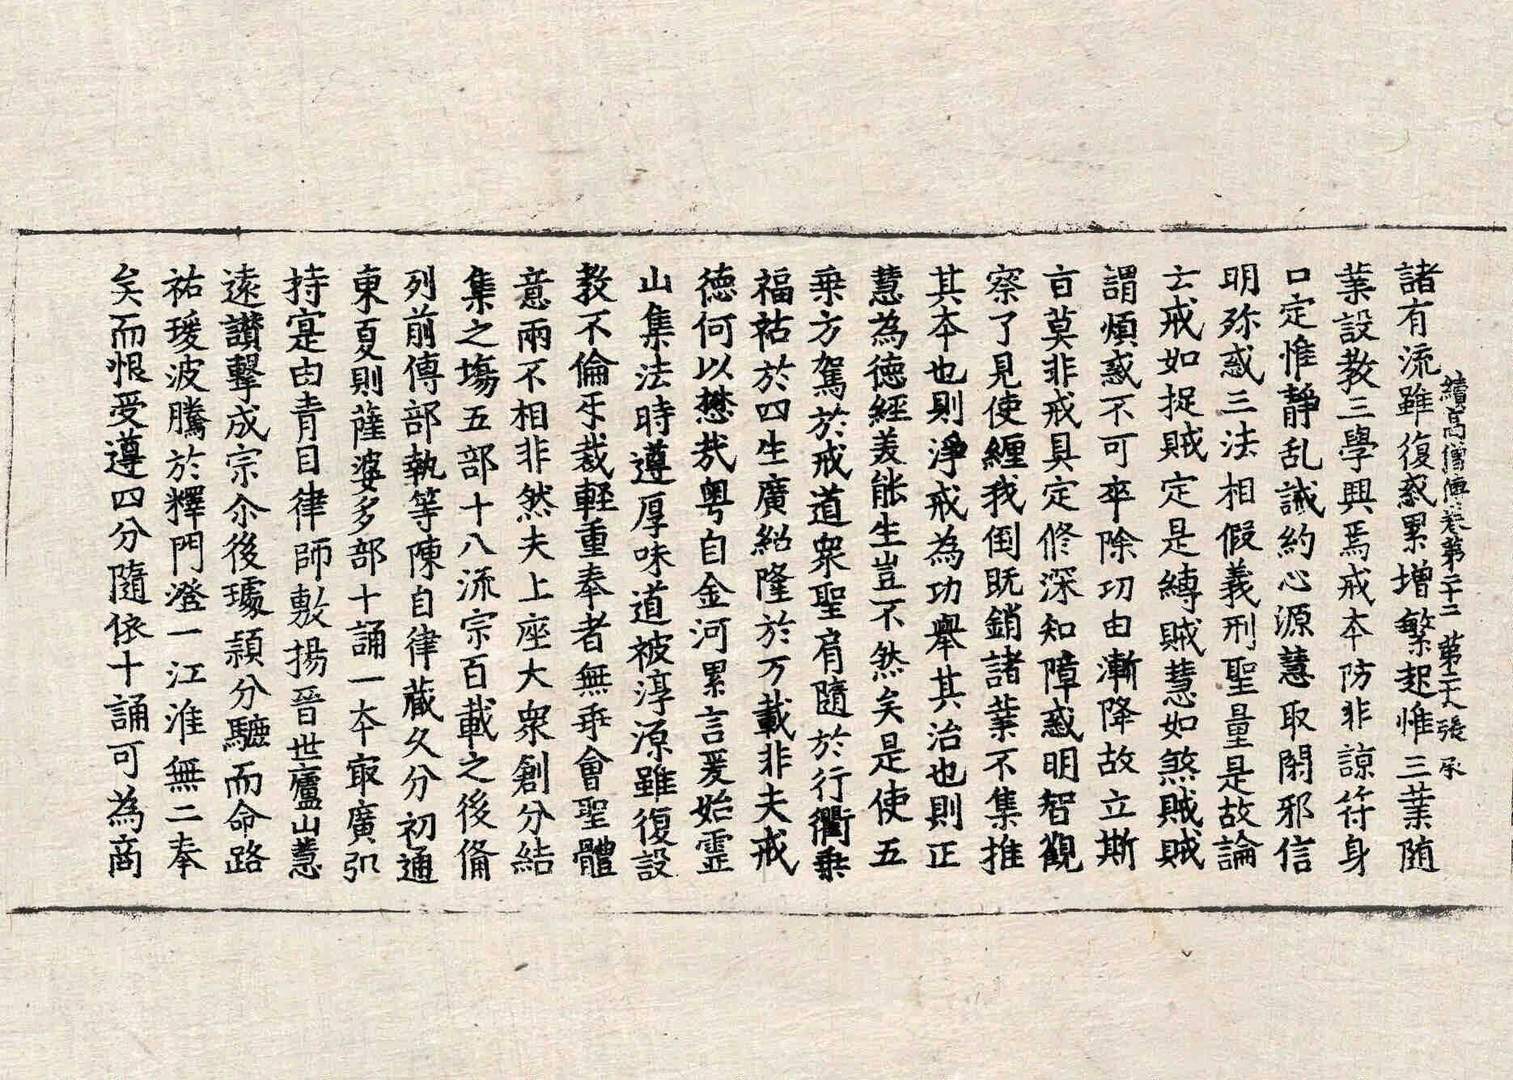 續高僧傳卷第二十二 第二十八張 承
諸有流雖復惑累增繁起惟三業随
業設教三學興焉戒本防非諒符身
口定惟靜乱誡約心源慧取閑邪信
明弥惑三法相假義刑聖量是故論
云戒如捉賊定是縛賊慧如煞賊賊
謂煩惑不可卒除功由漸降故立斯
旨莫非戒具定修深知障惑明智觀
察了見使纏我倒既銷諸業不集推
其本也則淨戒為功舉其治也則正
慧為德經美能生豈不然矣是使五
乗方駕於戒道衆聖肩隨於行衢乗
福祜於四生廣紹隆於万載非夫戒
德何以懋哉粤自金河累言爰始靈
山集法時遵厚味道被淳源雖復設
教不倫牙裁輕重奉者無乖會聖體
意兩不相非然夫上座大衆創分結
集之塲五部十八流宗百載之後俻
列前傳部執等陳自律藏久分初通
東夏則薩婆多部十誦一本㝡廣弘
持寔由青目律師敷揚晉世廬山慧
遠讚擊成宗尒後璩頴分驫而命路
祐瑗波騰於釋門澄一江淮無二奉
矣而恨受遵四分隨依十誦可為商